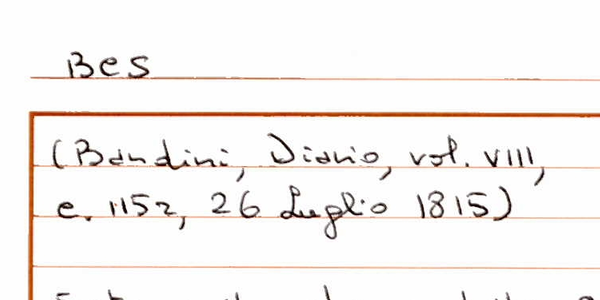 Bes
(Bandini, Diario, vol. VIII,
c. 115z, 26 Luglio 1815)